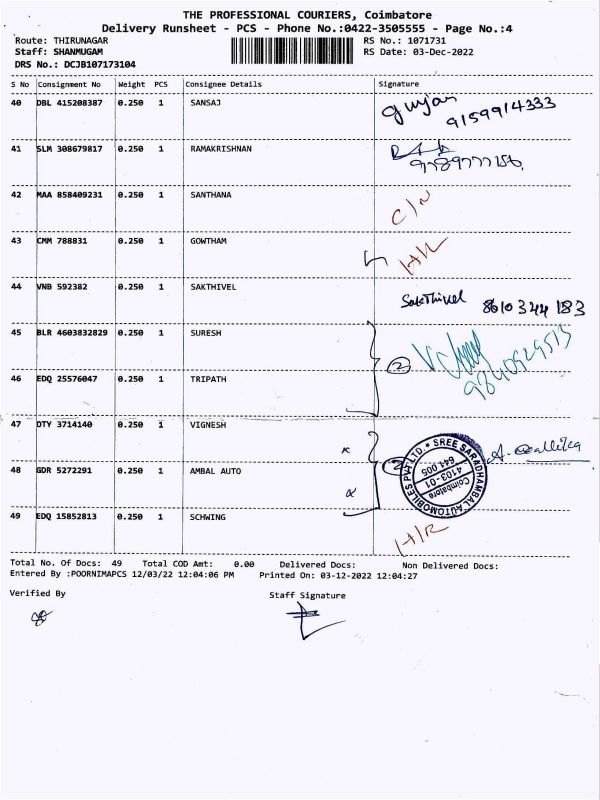 THE PROFESSIONAL COURIERS, Coimbatore
Delivery Runsheet - PCS - Phone No.:0422-3505555 - Page No.:4
Route: THIRUNAGAR RS No.: 1071731
Staff: SHANMUGAM RS Date: 03-Dec-2022
DRS No.: DCJB107173104
S No Consignment No Weight PCS Consignee Details Signature
40 DBL 415208387 0.250 1 SANSAJ
9159914333
41 SLM 308679817 0.250 1 RAMAKRISHNAN
42 MAA 858409231 0.250 1 SANTHANA
C/N
43 CMM 788831 0.250 1 GOWTHAM
44 VNB 592382 0.250 1 SAKTHIVEL
SakThivel 8610344183
45 BLR 4603832829 0.250 1 SURESH
2
46 EDQ 25576047 0.250 1 TRIPATH
47 DTY 3714140 0.250 1 VIGNESH
48 GDR 5272291 0.250 1 AMBAL AUTO
SREE SARADHAMBAL AUTOMOBILES PVT LTD.
4103-01
Coimbatore
641 005
49 EDQ 15852813 0.250 1 SCHWING
H/R
Total No. Of Docs: 49 Total COD Amt: 0.00 Delivered Docs: Non Delivered Docs:
Entered By :POORNIMAPCS 12/03/22 12:04:06 PM Printed On: 03-12-2022 12:04:27
Verified By Staff Signature